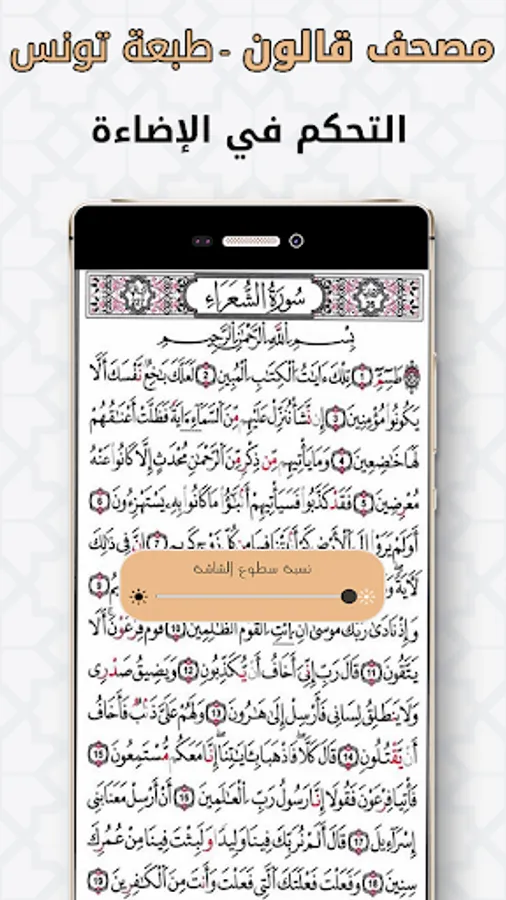 مصحف قالون - طبعة تونس
التحكم في الإضاءة
سُورَةُ الشُّعَرَاءِ
بِسْمِ اللَّهِ الرَّحْمَٰنِ الرَّحِيمِ
طَسِمِّ (1) تِلْكَ ءَايَٰتُ الْكِتَٰبِ الْمُبِينِ (2) لَعَلَّكَ بَٰخِعٌ نَّفْسَكَ أَلَّا
يَكُونُوا مُؤْمِنِينَ (3) إِن نَّشَأْ نُنَزِّلْ عَلَيْهِم مِّنَ السَّمَاءِ ءَايَةً فَظَلَّتْ أَعْنَٰقُهُمْ
لَهَا خَٰضِعِينَ (4) وَمَا يَأْتِيهِم مِّن ذِكْرٍ مِّنَ الرَّحْمَٰنِ مُحْدَثٍ إِلَّا كَانُوا عَنْهُ
مُعْرِضِينَ (5) فَقَدْ كَذَّبُوا فَسَيَأْتِيهِمْ أَنۢبَٰٓؤُا مَا كَانُوا بِهِ يَسْتَهْزِءُونَ (6)
أَوَلَمْ يَرَوْا إِلَى الْأَرْضِ كَمْ أَنۢبَتْنَا فِيهَا مِن كُلِّ زَوْجٍ كَرِيمٍ (7) إِنَّ فِي ذَٰلِكَ
لَأٓيَةً (8)
نسبة سطوع الشاشة
وَإِذْ نَادَىٰ رَبُّكَ مُوسَىٰ أَنِ ائْتِ الْقَوْمَ الظَّٰلِمِينَ (10) قَوْمَ فِرْعَوْنَ أَلَا
يَتَّقُونَ (11) قَالَ رَبِّ إِنِّيَ أَخَافُ أَن يُكَذِّبُونِ (12) وَيَضِيقُ صَدْرِي
وَلَا يَنطَلِقُ لِسَانِي فَأَرْسِلْ إِلَىٰ هَٰرُونَ (13) وَلَهُمْ عَلَيَّ ذَنۢبٌ فَأَخَافُ
أَن يَقْتُلُونِ (14) قَالَ كَلَّا فَاذْهَبَا بِـَٔايَٰتِنَا إِنَّا مَعَكُم مُّسْتَمِعُونَ (15)
فَأْتِيَا فِرْعَوْنَ فَقُولَا إِنَّا رَسُولُ رَبِّ الْعَٰلَمِينَ (16) أَنْ أَرْسِلْ مَعَنَا بَنِي
إِسْرَآءِيلَ (17) قَالَ أَلَمْ نُرَبِّكَ فِينَا وَلِيدًا وَلَبِثْتَ فِينَا مِنْ عُمُرِكَ
سِنِينَ (18) وَفَعَلْتَ فَعْلَتَكَ الَّتِي فَعَلْتَ وَأَنتَ مِنَ الْكَٰفِرِينَ (19)